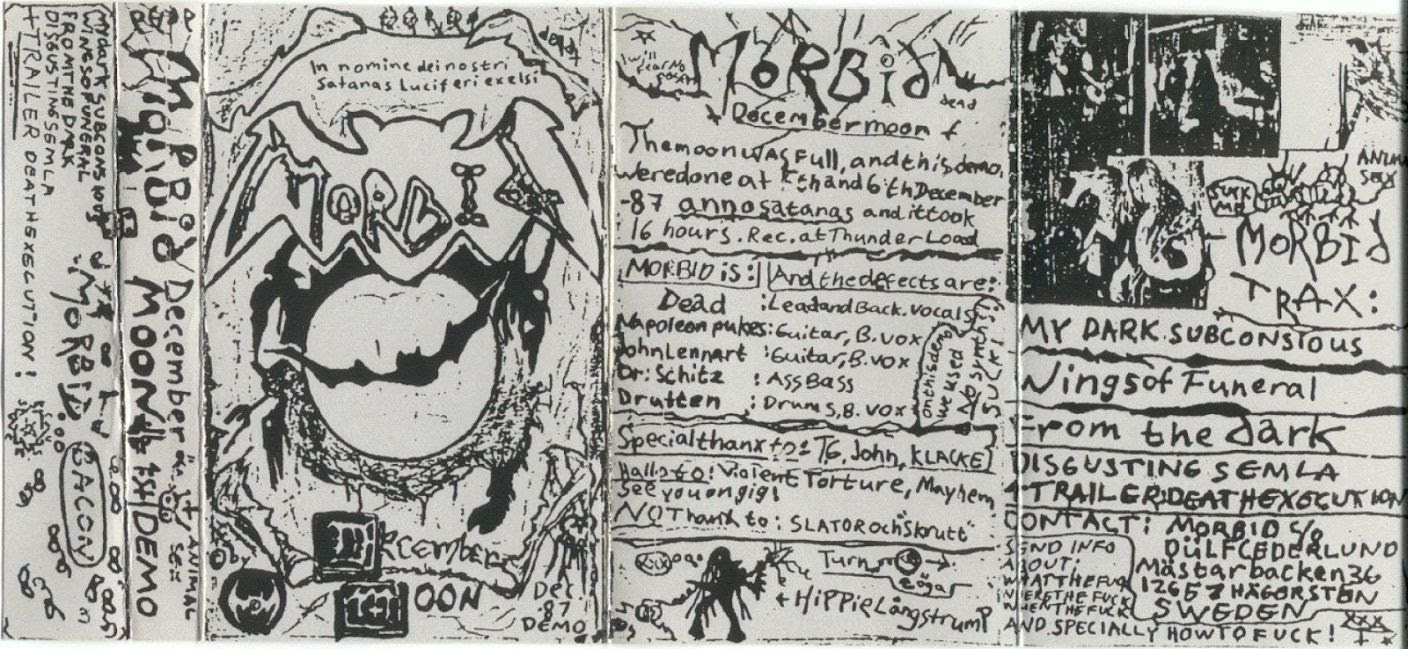 MY DARK SUBCONSTIOUS
WINGS OF FUNERAL
FROM THE DARK
DISGUSTING SEMLA
+ TRAILER DEATHEXECUTION!
MORBID
BACON
MORBID December
MOON 1st DEMO
ANIMAL
SEX
In nomine dei nostri
Satanas Luciferi exelsi
MORBID
DECEMBER
MOON
Dec
87
DEMO
MORBID
dead
+ December moon +
The moon WAS Full, and this demo,
were done at 5th and 6th December
-87 anno satanas and it took
16 hours. Rec. at Thunder Load
MORBID is: And the defects are:
Dead : Lead and Back. vocals
Napoleon pukes: Guitar, B. vox
John Lennart : Guitar, B. vox
Dr. Schitz : Ass Bass
Drutten : Drums, B. vox
on this demo
we used
No synths!
SUCK!
Special thanx to: TG, John, KLACKE
Hallo to! Violent Torture, Mayhem
See you on gig!
NO Thanx to: SLATOR och "Skrutt"
Turn
eöga
+ HiPPie Långstrump
ANIMAL
SEX
SUCK
ME
MORBID
TRAX:
MY DARK SUBCONSTOUS
Wings of Funeral
From the dark
DISGUSTING SEMLA
+ TRAILER: DEATHEXECUTION
CONTACT: MORBID c/o
DÜLF CEDERLUND
Mästarbacken 36
12657 HÄGERSTEN
SWEDEN
SEND INFO
ABOUT:
WHAT THE FUCK
WHERE THE FUCK
WHEN THE FUCK
AND SPECIALLY HOW TO FUCK!
XXX